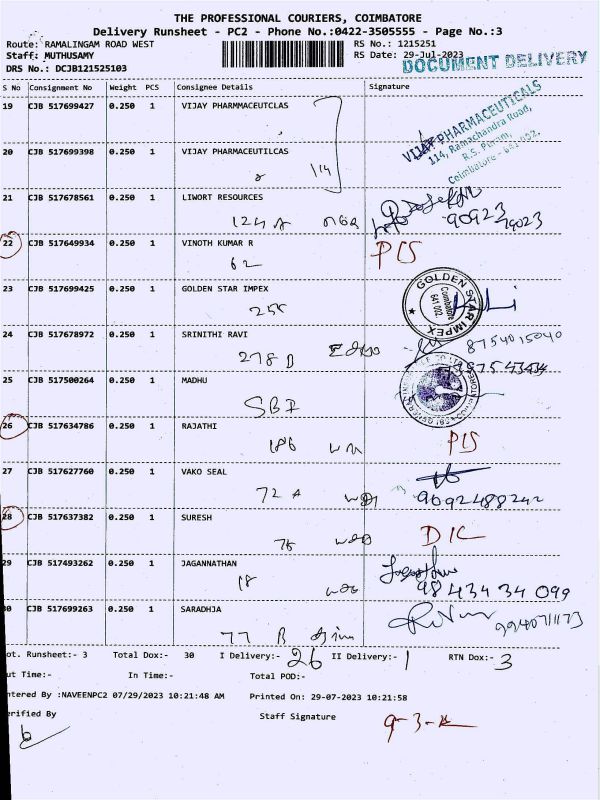 THE PROFESSIONAL COURIERS, COIMBATORE
Delivery Runsheet - PC2 - Phone No.:0422-3505555 - Page No.:3
Route: RAMALINGAM ROAD WEST RS No.: 1215251
Staff: MUTHUSAMY RS Date: 29-Jul-2023
DRS No.: DCJB121525103
DOCUMENT DELIVERY
S No Consignment No Weight PCS Consignee Details Signature
19 CJB 517699427 0.250 1 VIJAY PHARMMACEUTCLAS
VIJAY PHARMACEUTICALS
114, Ramachandra Road,
R.S. Puram,
Coimbatore - 641 002.
20 CJB 517699398 0.250 1 VIJAY PHARMACEUTILCAS
114
21 CJB 517678561 0.250 1 LIWORT RESOURCES
124 A
90923
22 CJB 517649934 0.250 1 VINOTH KUMAR R
62
23 CJB 517699425 0.250 1 GOLDEN STAR IMPEX
GOLDEN STAR IMPEX
Coimbatore
641 002.
24 CJB 517678972 0.250 1 SRINITHI RAVI
278 B
8754015040
25 CJB 517500264 0.250 1 MADHU
SBI
26 CJB 517634786 0.250 1 RAJATHI
186
27 CJB 517627760 0.250 1 VAKO SEAL
72 A
9092488242
28 CJB 517637382 0.250 1 SURESH
DIC
29 CJB 517493262 0.250 1 JAGANNATHAN
18
98434 34 099
30 CJB 517699263 0.250 1 SARADHJA
77 B
9940711173
ot. Runsheet:- 3 Total Dox:- 30 I Delivery:- 26 II Delivery:- 1 RTN Dox:- 3
ut Time:- In Time:- Total POD:-
ntered By :NAVEENPC2 07/29/2023 10:21:48 AM Printed On: 29-07-2023 10:21:58
erified By Staff Signature